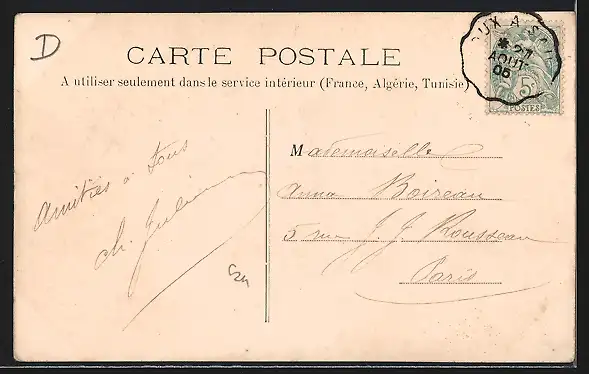 D
CARTE POSTALE
A utiliser seulement dans le service intérieur (France, Algérie, Tunisie)
UX A S
27
AOUT
06
5
POSTES
Mademoiselle
Anna Boireau
5 rue J. J. Rousseau
Paris
Amitiés à tous
Ch. Julien